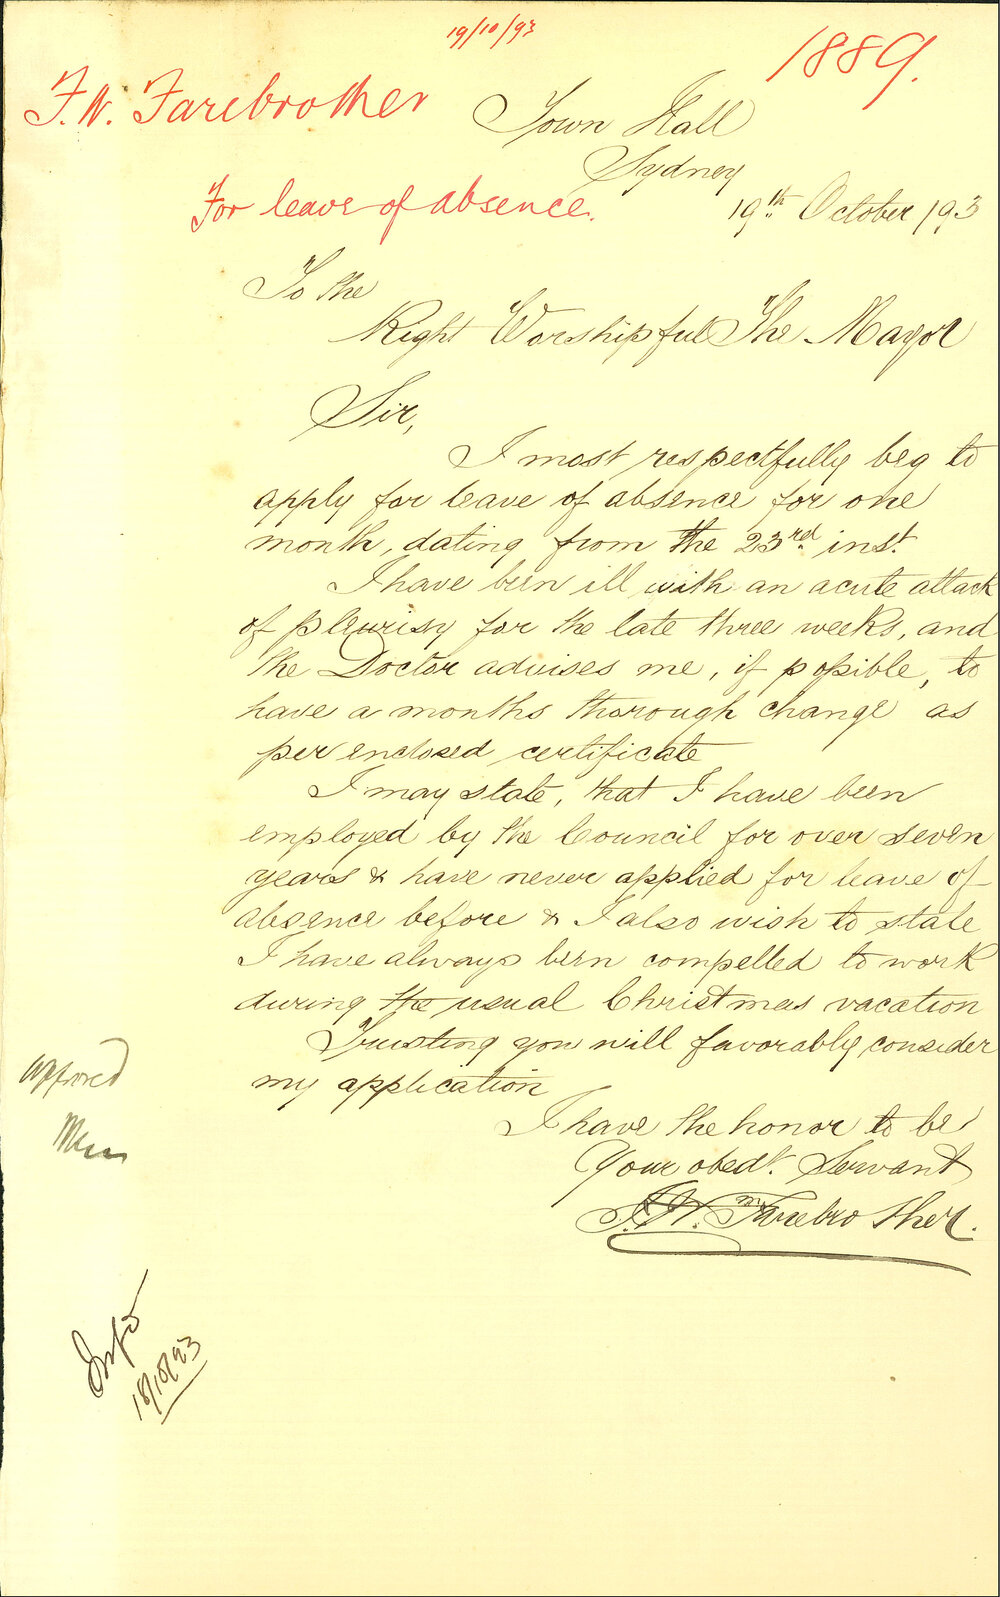 19/10/93
1889.
F. W. Farebrother
Town Hall
Sydney
For leave of absence.
19th October 193
To the
Right Worshipful The Mayor
Sir,
I most respectfully beg to
apply for leave of absence for one
month, dating from the 23rd inst.
I have been ill with an acute attack
of pleurisy for the late three weeks, and
the Doctor advises me, if possible, to
have a months thorough change as
per enclosed certificate
I may state, that I have been
employed by the Council for over seven
years & have never applied for leave of
absence before & I also wish to state
I have always been compelled to work
during the usual Christmas vacation
Trusting you will favorably consider
my application
approved
I have the honor to be
Your obedt. Servant
F. W. Farebrother.
18/10/93